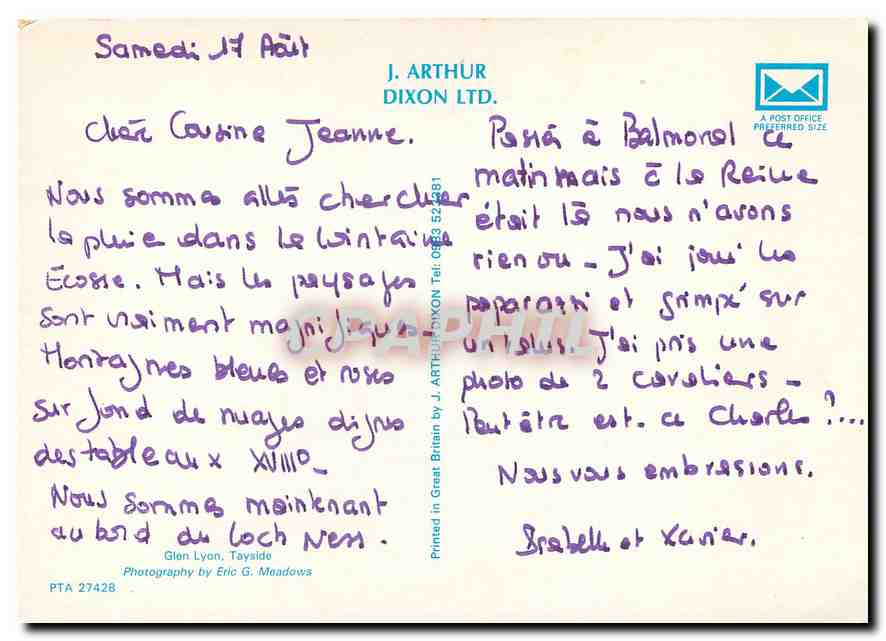 Samedi 17 Août
J. ARTHUR
DIXON LTD.
A POST OFFICE
PREFERRED SIZE
Cher Cousine Jeanne.
Nous sommes allés chercher
la pluie dans la lointaine
Ecosse. Mais les paysages
sont vraiment magnifiques -
Montagnes bleues et roses
sur fond de nuages dignes
des tableaux XVIIIº -
Nous sommes maintenant
au bord du Loch Ness.
Passés à Balmoral ce
matin mais à la Reine
était là nous n'avons
rien vu - J'ai joué les
paparazzi et grimpé sur
un talus. J'ai pris une
photo de 2 cavaliers -
Peut être est-ce Charles ?....
Nous vous embrassons.
Isabelle et Xavier.
Printed in Great Britain by J. ARTHUR DIXON Tel: 0983 523381
DELCAMPHIL
Glen Lyon, Tayside
Photography by Eric G. Meadows
PTA 27428